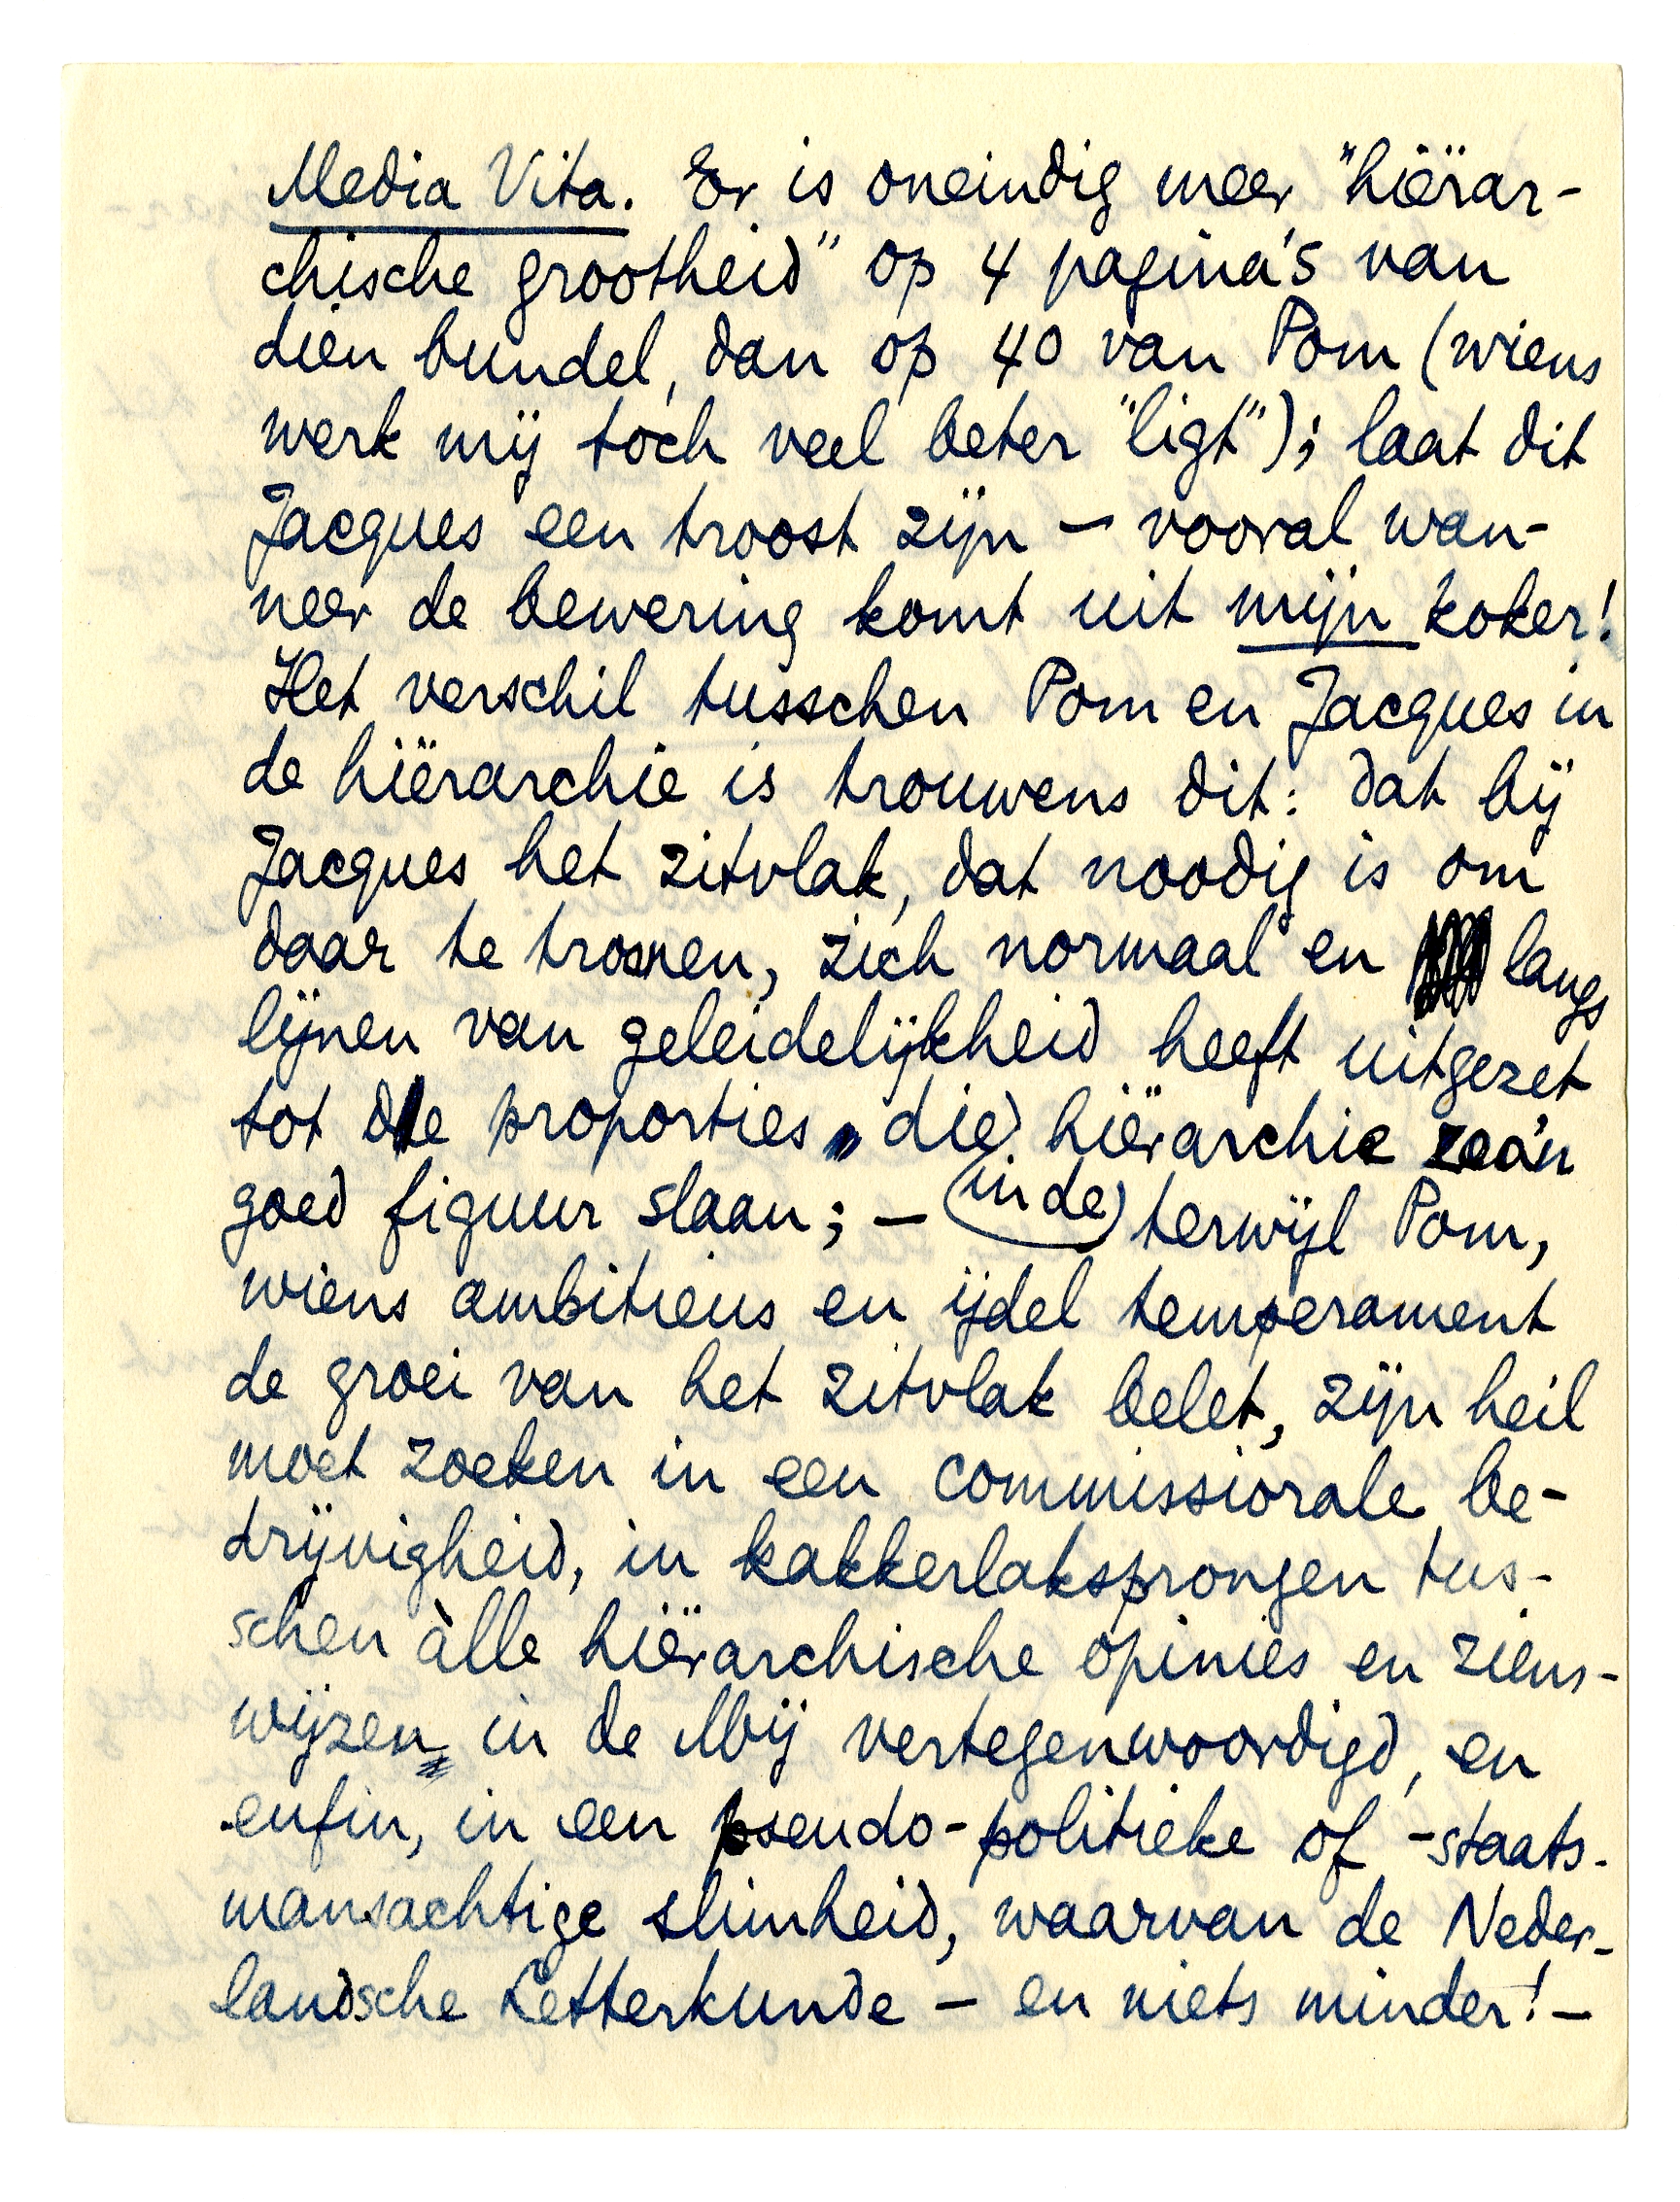 Media Vita. Er is oneindig meer "hiërar-
chische grootheid" op 4 pagina's van
dien bundel, dan op 40 van Pom (wiens
werk mij toch veel beter "ligt"); laat dit
Jacques een troost zijn — vooral wan-
neer de bewering komt uit mijn koker!
Het verschil tusschen Pom en Jacques in
de hiërarchie is trouwens dit: dat bij
Jacques het zitvlak, dat noodig is om
daar te tronen, zich normaal en langs
lijnen van geleidelijkheid heeft uitgezet
tot de proporties die hiërarchie zoo'n
goed figuur slaan; — (in de) terwijl Pom,
wiens ambitieus en ijdel temperament
de groei van het zitvlak belet, zijn heil
moet zoeken in een commissiorale be-
drijvigheid, in kakkerlaksprongen tus-
schen àlle hiërarchische opinies en ziens-
wijzen in de Mij vertegenwoordigd, en
enfin, in een pseudo-politieke of -staats-
mansachtige slimheid, waarvan de Neder-
landsche Letterkunde — en niets minder! —